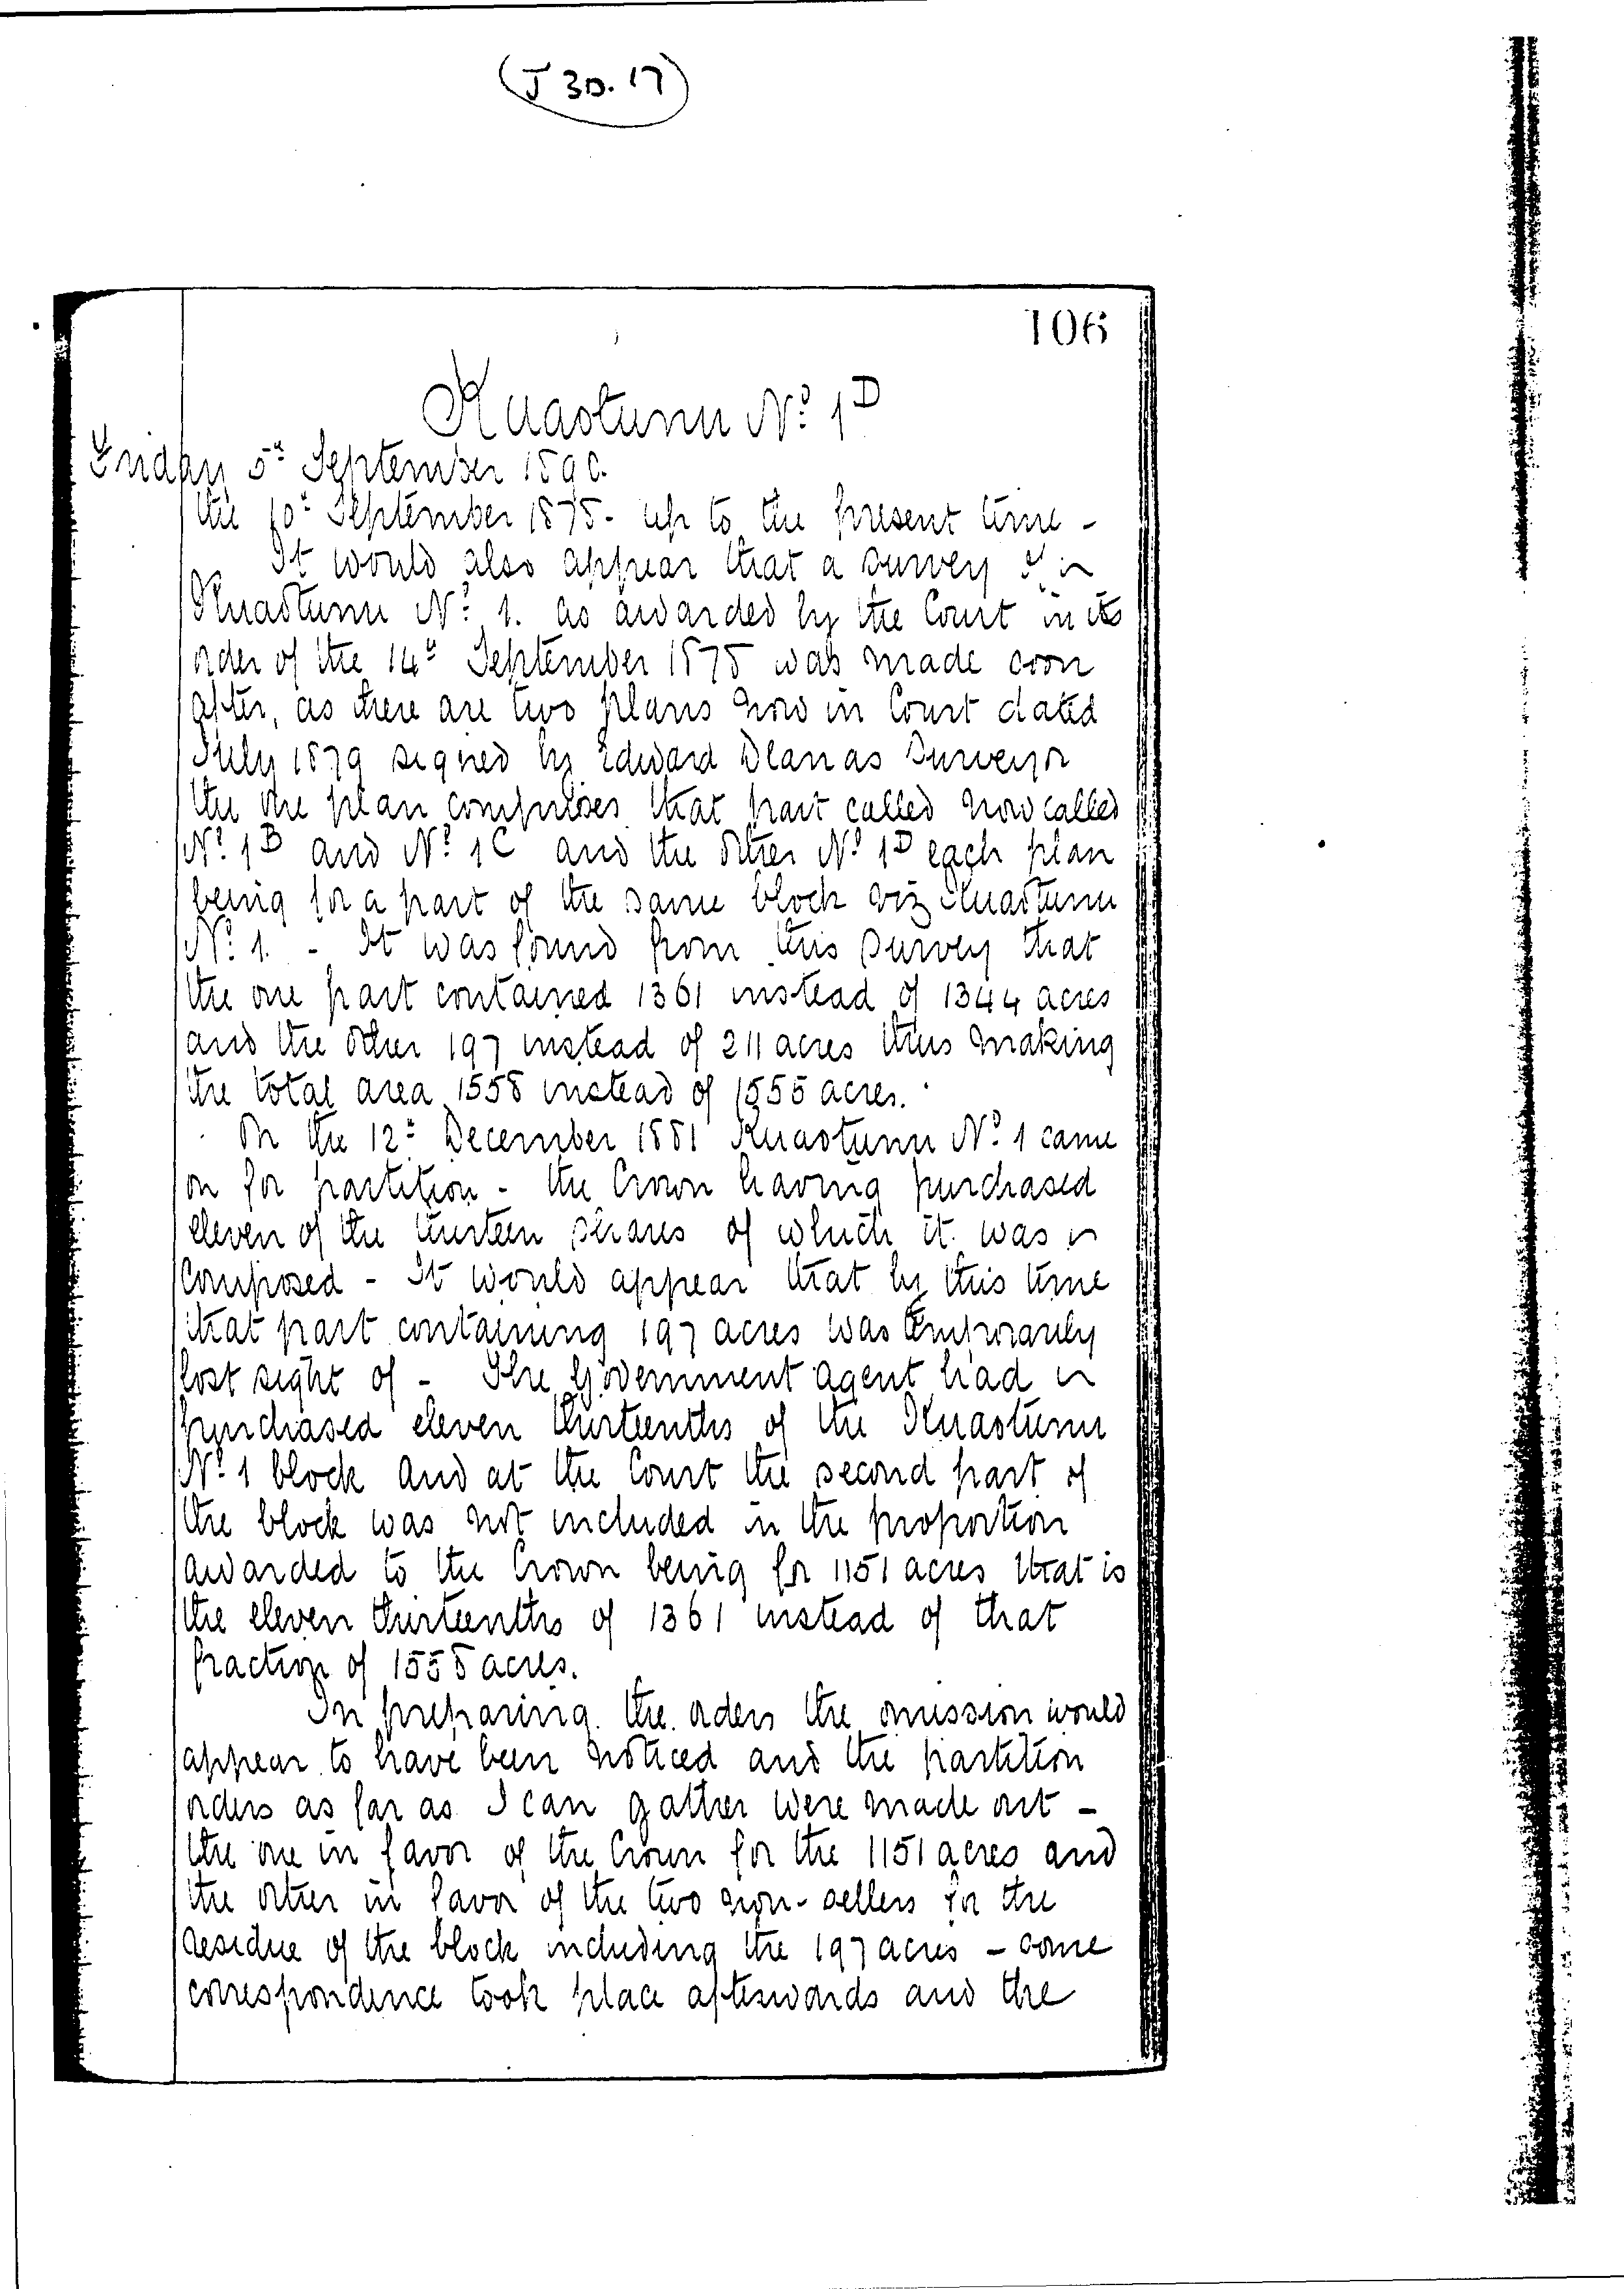 (J 30.17)
106
Kuaotunu No. 1D
Friday 5th September 1890.
the 10th September 1875 - up to the present time -
It would also appear that a survey of
Kuaotunu No. 1. as awarded by the Court in its
order of the 14th September 1875 was made soon
after, as there are two plans now in Court dated
July 1879 signed by Edward Dean as Surveyor
the one plan comprises that part called now called
No. 1B and No. 1C and the other No. 1D each plan
being for a part of the same block viz Kuaotunu
No. 1. - It was found from this survey that
the one part contained 1361 instead of 1344 acres
and the other 197 instead of 211 acres thus making
the total area 1558 instead of 1555 acres.
On the 12th December 1881 Kuaotunu No. 1 came
on for partition - the Crown having purchased
eleven of the thirteen shares of which it was
composed - It would appear that by this time
that part containing 197 acres was temporarily
lost sight of - The Government agent had
purchased eleven thirteenths of the Kuaotunu
No. 1 block and at the Court the second part of
the block was not included in the proportion
awarded to the Crown being for 1151 acres that is
the eleven thirteenths of 1361 instead of that
fraction of 1558 acres.
In preparing the orders the omission would
appear to have been noticed and the partition
orders as far as I can gather were made out -
the one in favor of the Crown for the 1151 acres and
the other in favor of the two non-sellers for the
residue of the block including the 197 acres - some
correspondence took place afterwards and the